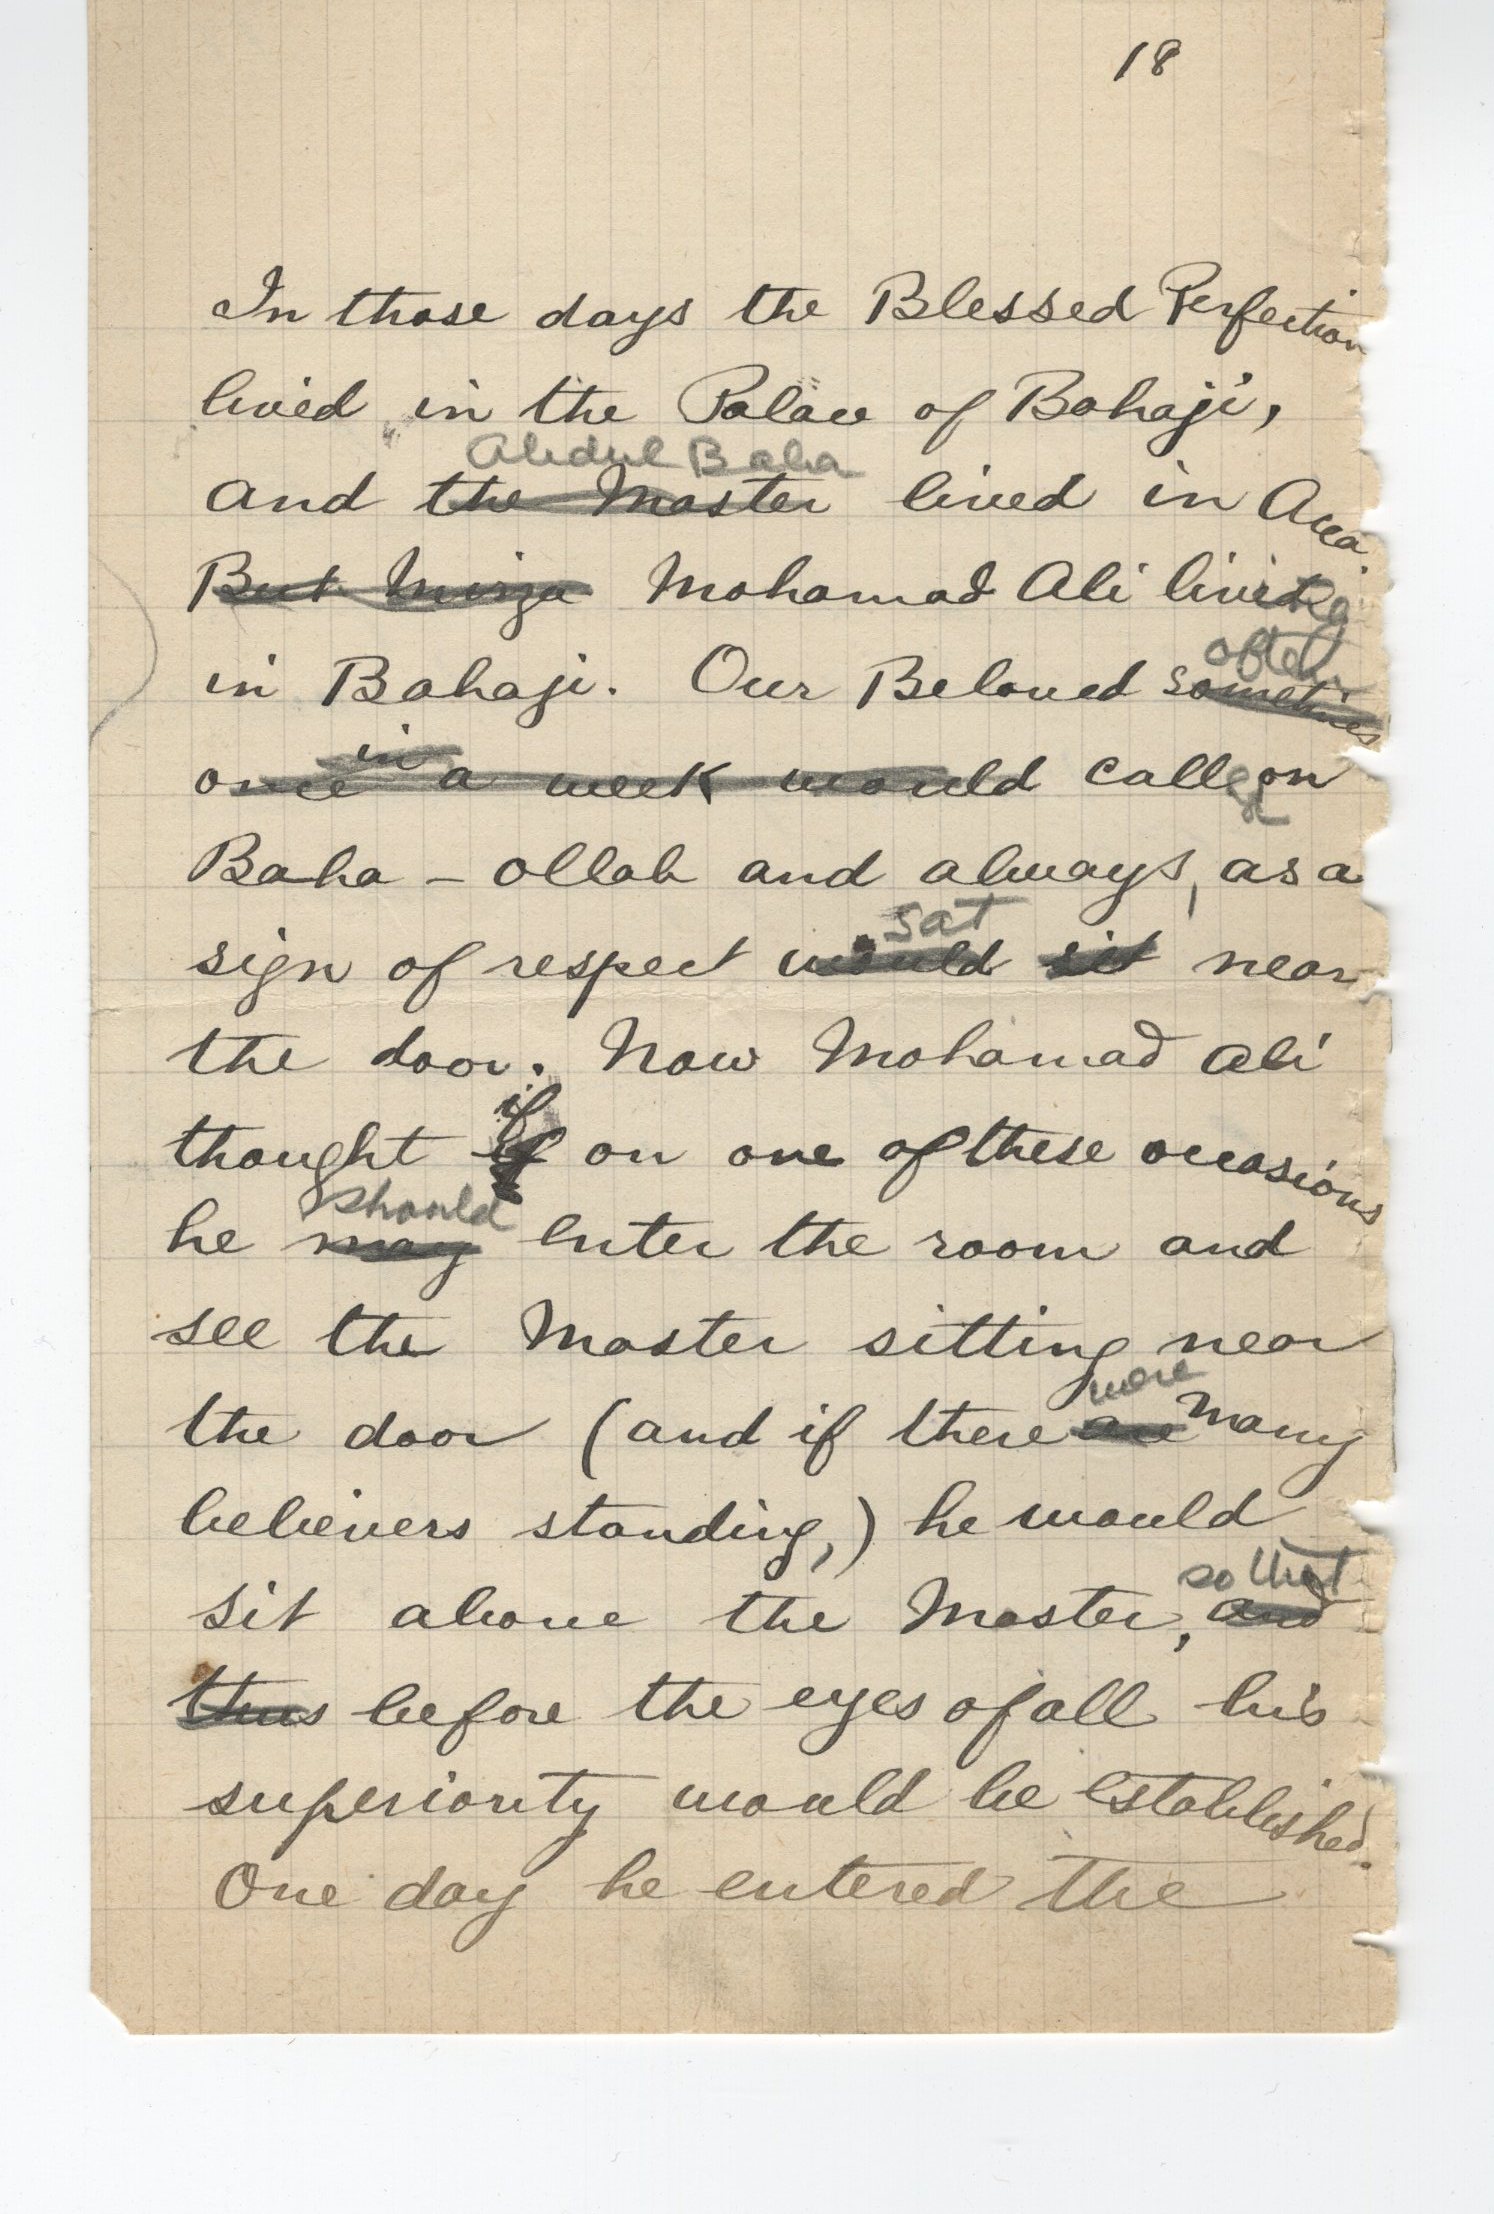 18
In those days the Blessed Perfection
lived in the Palace of Bahaji,
Abdul Baha
and the Master lived in Acca.
But Mirza Mohamad Ali living
often
in Bahaji. Our Beloved sometimes
in
once a week would called on
Baha-ollah and always, as a
sat
sign of respect would sit near
the door. Now Mohamad Ali
if
thought if on one of these occasions
should
he may enter the room and
see the Master sitting near
were
the door (and if there are many
believers standing,) he would
so that
sit above the Master, and
thus before the eyes of all his
superiority would be established.
One day he entered the